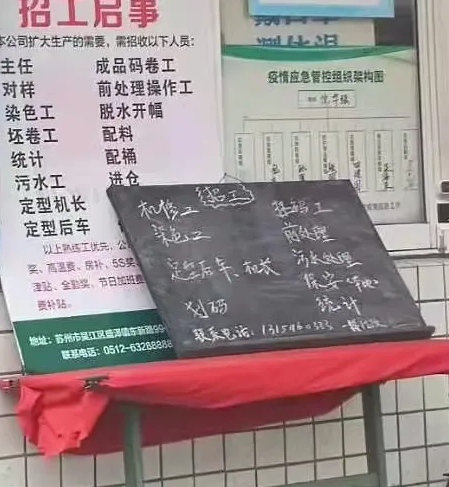 招工启事
本公司扩大生产的需要，需招收以下人员：
主任 成品码卷工
对样 前处理操作工
染色工 脱水开幅
坯卷工 配料
统计 配桶
污水工 进仓
定型机长
定型后车
以上熟练工优先，公
奖、高温费、房补、5S奖
津贴、全勤奖、节日加班费
费补贴。
地址：苏州市吴江区盛泽镇东新路99
联系电话：0512-63288888
测体温
疫情应急管控组织架构图
招工
机修工 打码工
染色工 前处理
定型后车、机长 污水处理
保安
划码 统计
联系电话：